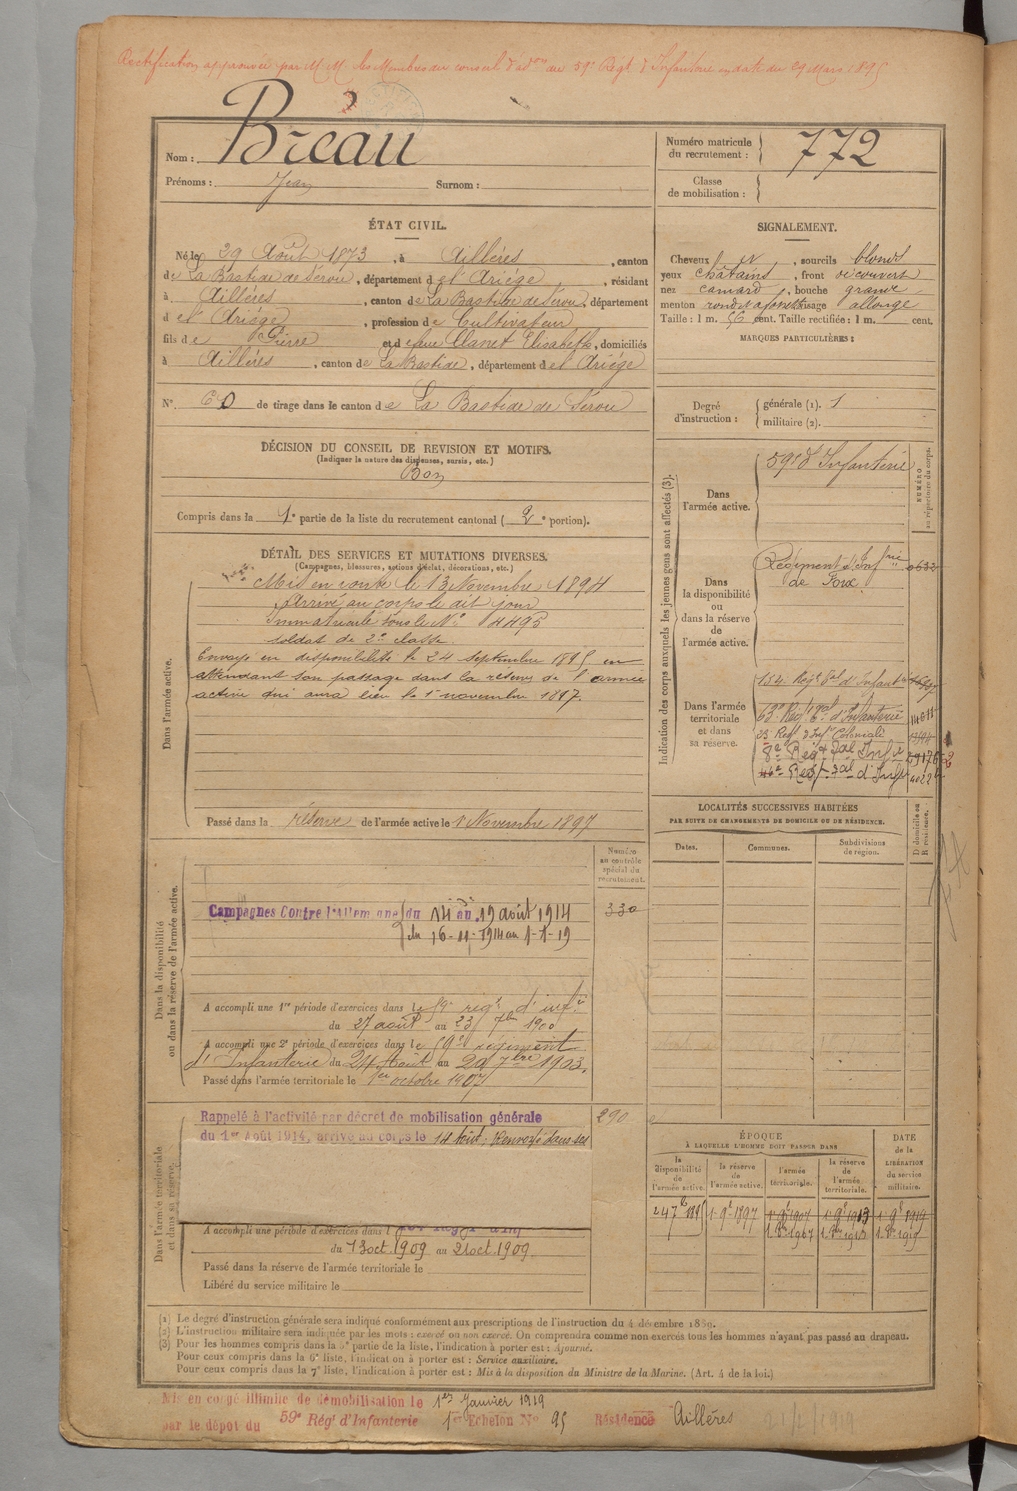 Rectification approuvée par M.M. les Membres du conseil d'ad^on du 59e Regt d'Infanterie en date du 29 Mars 1895
Nom : Bréau
Prénoms : Jean Surnom :
Numéro matricule du recrutement : 772
Classe de mobilisation :
ÉTAT CIVIL.
Né le 29 Août 1873, à Aillères, canton
de La Bastide de Sérou, département de l'Ariége, résidant
à Aillères, canton de La Bastide de Sérou, département
de l'Ariége, profession de Cultivateur
fils de Pierre et de Clanet Elisabeth, domiciliés
à Aillères, canton de La Bastide, département de l'Ariége
N° 60 de tirage dans le canton de La Bastide de Sérou
SIGNALEMENT.
Cheveux, sourcils blonds
yeux châtains, front découvert
nez camard, bouche grande
menton rond, visage allongé
Taille : 1 m. 56 cent. Taille rectifiée : 1 m. cent.
MARQUES PARTICULIÈRES :
Degré d'instruction : générale (1). 1
militaire (2).
DÉCISION DU CONSEIL DE REVISION ET MOTIFS.
(Indiquer la nature des dispenses, sursis, etc.)
Bon
Compris dans la 1e partie de la liste du recrutement cantonal (2e portion).
DÉTAIL DES SERVICES ET MUTATIONS DIVERSES.
(Campagnes, blessures, actions d'éclat, décorations, etc.)
Dans l'armée active.
Mis en route le 13 Novembre 1894
Arrivé au corps le dit jour
Immatriculé sous le N° 4495
soldat de 2e classe.
Envoyé en disponibilité le 24 septembre 1895 en
attendant son passage dans la réserve de l'armée
active qui aura lieu le 1er novembre 1897.
Passé dans la réserve de l'armée active le 1 Novembre 1897
Indication des corps auxquels les jeunes gens sont affectés (3).
NUMÉRO au répertoire du corps.
Dans l'armée active.
59e d'Infanterie
Dans la disponibilité ou dans la réserve de l'armée active.
Régiment d'Infrie de Foix
Dans l'armée territoriale et dans sa réserve.
134e Regt tal d'Infanterie
63e Regt tal d'Infanterie
23 Regt d'Infie Coloniale
8e Regt tal Infie
Regt tal d'Infie
LOCALITÉS SUCCESSIVES HABITÉES
PAR SUITE DE CHANGEMENTS DE DOMICILE OU DE RÉSIDENCE.
Dates. Communes. Subdivisions de région. D domicile ou R résidence.
Dans la disponibilité ou dans la réserve de l'armée active.
Numéro au contrôle spécial du recrutement.
330
Campagnes Contre l'Allemagne du 14 au 19 août 1914
du 16-11-1914 au 1-1-19
A accompli une 1re période d'exercices dans le 59e régt d'infie
du 27 août au 23 7bre 1900
A accompli une 2e période d'exercices dans le 59e régiment
d'Infanterie du 24 Août au 20 7bre 1903.
Passé dans l'armée territoriale le 1er octobre 1907
Dans l'armée territoriale et dans sa réserve.
290
Rappelé à l'activité par décret de mobilisation générale
du 1er Août 1914, arrivé au corps le 14 Août. Renvoyé dans ses
A accompli une période d'exercices dans l
du 13 oct. 1909 au 21 oct. 1909
Passé dans la réserve de l'armée territoriale le
Libéré du service militaire le
ÉPOQUE
À LAQUELLE L'HOMME DOIT PASSER DANS
la disponibilité de l'armée active.
la réserve de l'armée active.
l'armée territoriale.
la réserve de l'armée territoriale.
DATE de la LIBÉRATION du service militaire.
24 7bre 1895 1 9bre 1897 1 9bre 1907 1 9bre 1913 1 9bre 1919
1 8bre 1907 1 8bre 1913 1 8bre 1919
(1) Le degré d'instruction générale sera indiqué conformément aux prescriptions de l'instruction du 4 décembre 1889.
(2) L'instruction militaire sera indiquée par les mots : exercé ou non exercé. On comprendra comme non exercés tous les hommes n'ayant pas passé au drapeau.
(3) Pour les hommes compris dans la 5e partie de la liste, l'indication à porter est : Ajourné.
Pour ceux compris dans la 6e liste, l'indication à porter est : Service auxiliaire.
Pour ceux compris dans la 7e liste, l'indication à porter est : Mis à la disposition du Ministre de la Marine. (Art. 4 de la loi.)
Mis en congé illimité de démobilisation le 1er Janvier 1919
par le dépôt du 59e Régt d'Infanterie 1er Echelon N° 95 Résidence Aillères